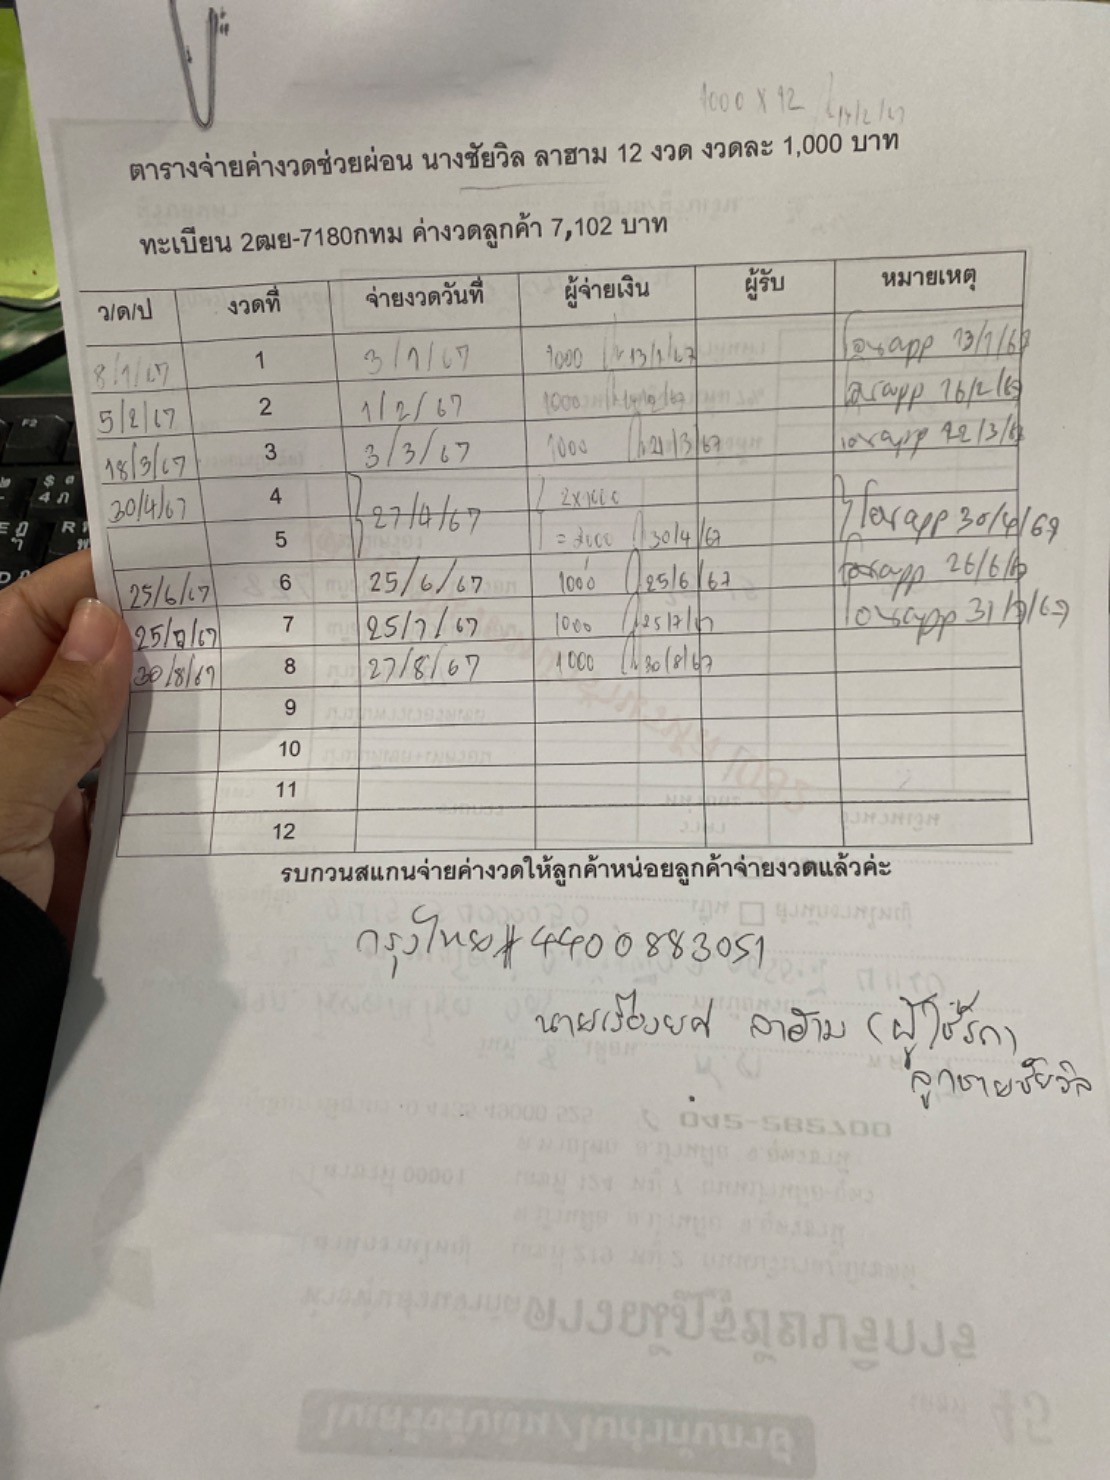 1000 X 12 14/2/67
ตารางจ่ายค่างวดช่วยผ่อน นางชัยวิล ลาฮาม 12 งวด งวดละ 1,000 บาท
ทะเบียน 2ฒย-7180กทม ค่างวดลูกค้า 7,102 บาท
ว/ด/ป งวดที่ จ่ายงวดวันที่ ผู้จ่ายเงิน ผู้รับ หมายเหตุ
8/1/67 1 3/1/67 1000 13/1/67 โอนapp 13/1/67
5/2/67 2 1/2/67 1000 โอนapp 16/2/67
18/3/67 3 3/3/67 1000 21/3/67 โอนapp 22/3/67
30/4/67 4 27/4/67 2x1000 โอนapp 30/4/67
5 = 2000 30/4/67
25/6/67 6 25/6/67 1000 25/6/67 โอนapp 26/6/67
25/7/67 7 25/7/67 1000 25/7/67 โอนapp 31/7/67
30/8/67 8 27/8/67 1000 30/8/67
9
10
11
12
รบกวนสแกนจ่ายค่างวดให้ลูกค้าหน่อยลูกค้าจ่ายงวดแล้วค่ะ
กรุงไทย# 4400883051
นายเรืองยศ ลาฮาม (ผู้ใช้รถ)
ลูกชายชัยวิล